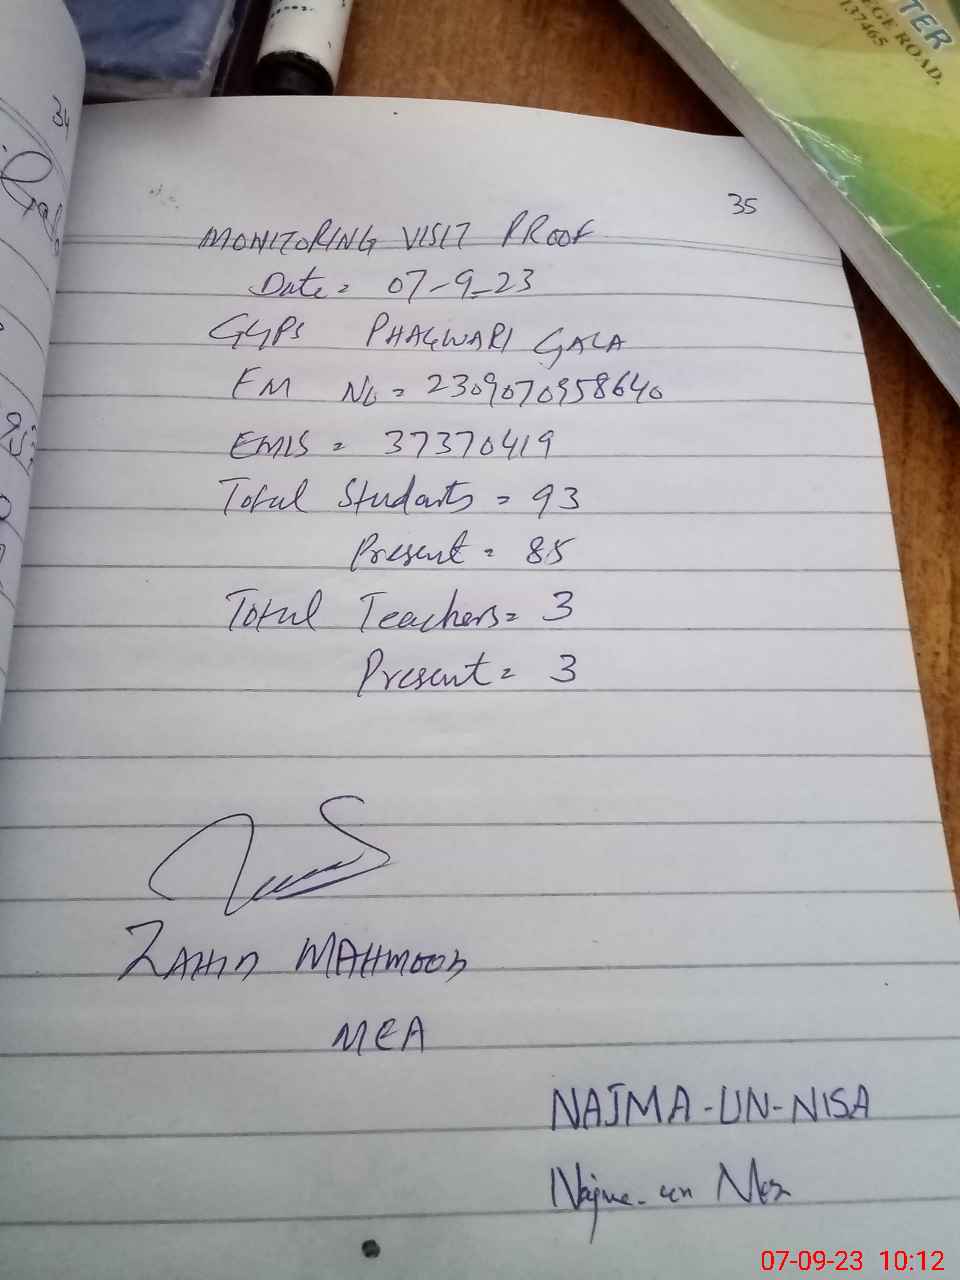 TER
EGE ROAD.
137465
34
35
MONITORING VISIT PROOF
Date = 07-9-23
GGPS PHAGWARI GALA
EM No = 2309070958640
EMIS = 37370419
Total Students = 93
Present = 85
Total Teachers = 3
Present = 3
ZAHID MAHMOOD
MEA
NAJMA-UN-NISA
Najma-un Nisa
07-09-23 10:12